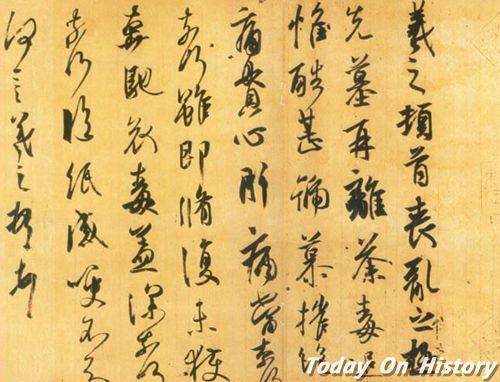 羲之頓首喪亂之極
先墓再離荼毒追
惟酷甚號慕摧絕
痛貫心肝痛當奈何
奈何雖即脩復未獲
奔馳哀毒益深奈何
奈何臨紙感哽不知
何言羲之頓首頓首
Today On History